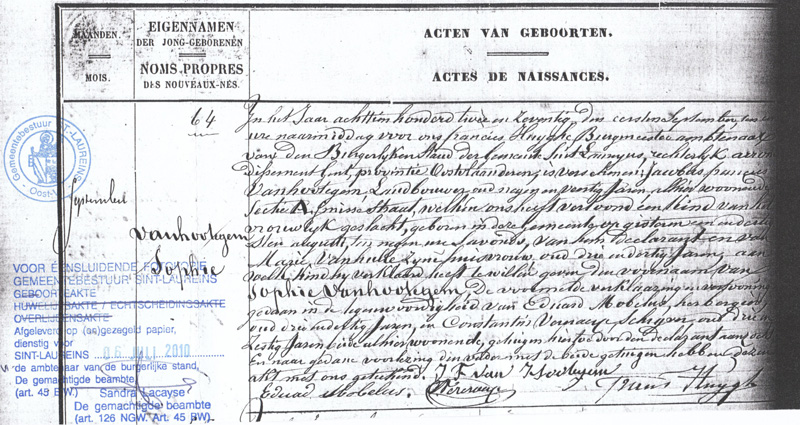 MAANDEN.
MOIS.
EIGENNAMEN
DER JONG-GEBORENEN
NOMS-PROPRES
DES NOUVEAUX-NÉS.
ACTEN VAN GEBOORTEN.
ACTES DE NAISSANCES.
Gemeentebestuur SINT-LAUREINS
September
64
Vanhootegem
Sophie
In het Jaar achttien honderd twee en Zeventig, den eersten September, ten
ure naarmiddag voor ons francies Huyghe Burgmeester ambtenaar
van den Burgerlyken Stand der Gemeente Sint Laureyns, rechterlyk arron
dissement Gent, provintie Oostvlaanderen, is verschenen: Jacobus francies
Vanhootegem, Landbouwer, oud Jaren, alhier woonende
Sectie A, straat, welken ons heeft vertoond een Kind van het
vrouwelyk geslacht, geboren in deze Gemeente op gisteren een en der
sten augusti, ten negen ure 's avonds, van hem Declarant en van
Marie Vanhulle zyne huisvrouw, oud drie en dertig Jaren, aan
welk Kind hy verklaard heeft te willen geven den voornaam van
Sophie Vanhootegem. De voormelde verklaaring en vertooning
gedaan in de tegenwoordigheid van Eduard Mobelus, herbergier
oud drie en dertig Jaren, en Constantin Vereraeye Schryver oud drie en
Zestig Jaren beide alhier woonende, getuigen hiertoe door den declarant aanzocht
En naar gedane voorlezing den vader met de beide getuigen hebben deze
akt met ons geteekend. J F Van Hootegem
Eduad Mobelus. Frans Huyghe
VOOR EENSLUIDENDE FOTOKOPIE
GEMEENTEBESTUUR SINT-LAUREINS
GEBOORTEAKTE
HUWELIJKSAKTE / ECHTSCHEIDINGSAKTE
OVERLIJDENSAKTE
Afgeleverd op (on)gezegeld papier,
dienstig voor
SINT-LAUREINS 06 JULI 2010
de ambtenaar van de burgerlijke stand,
De gemachtigde beambte
(art. 45 B.W.) Sandra Lacayse
De gemachtigde beambte
(art. 126 NGW. Art. 45 BW)